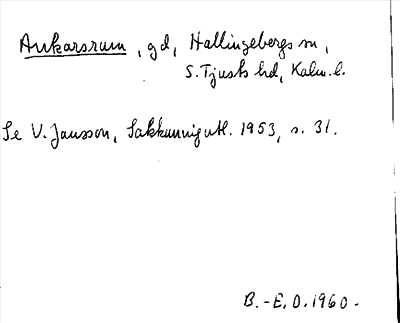 Ankarsrum, gd, Hallingebergs sn,
S. Tjusts hd, Kalm. l.
Se V. Jansson, Sakkunnigutl. 1953, s. 31.
B.-E.O. 1960.